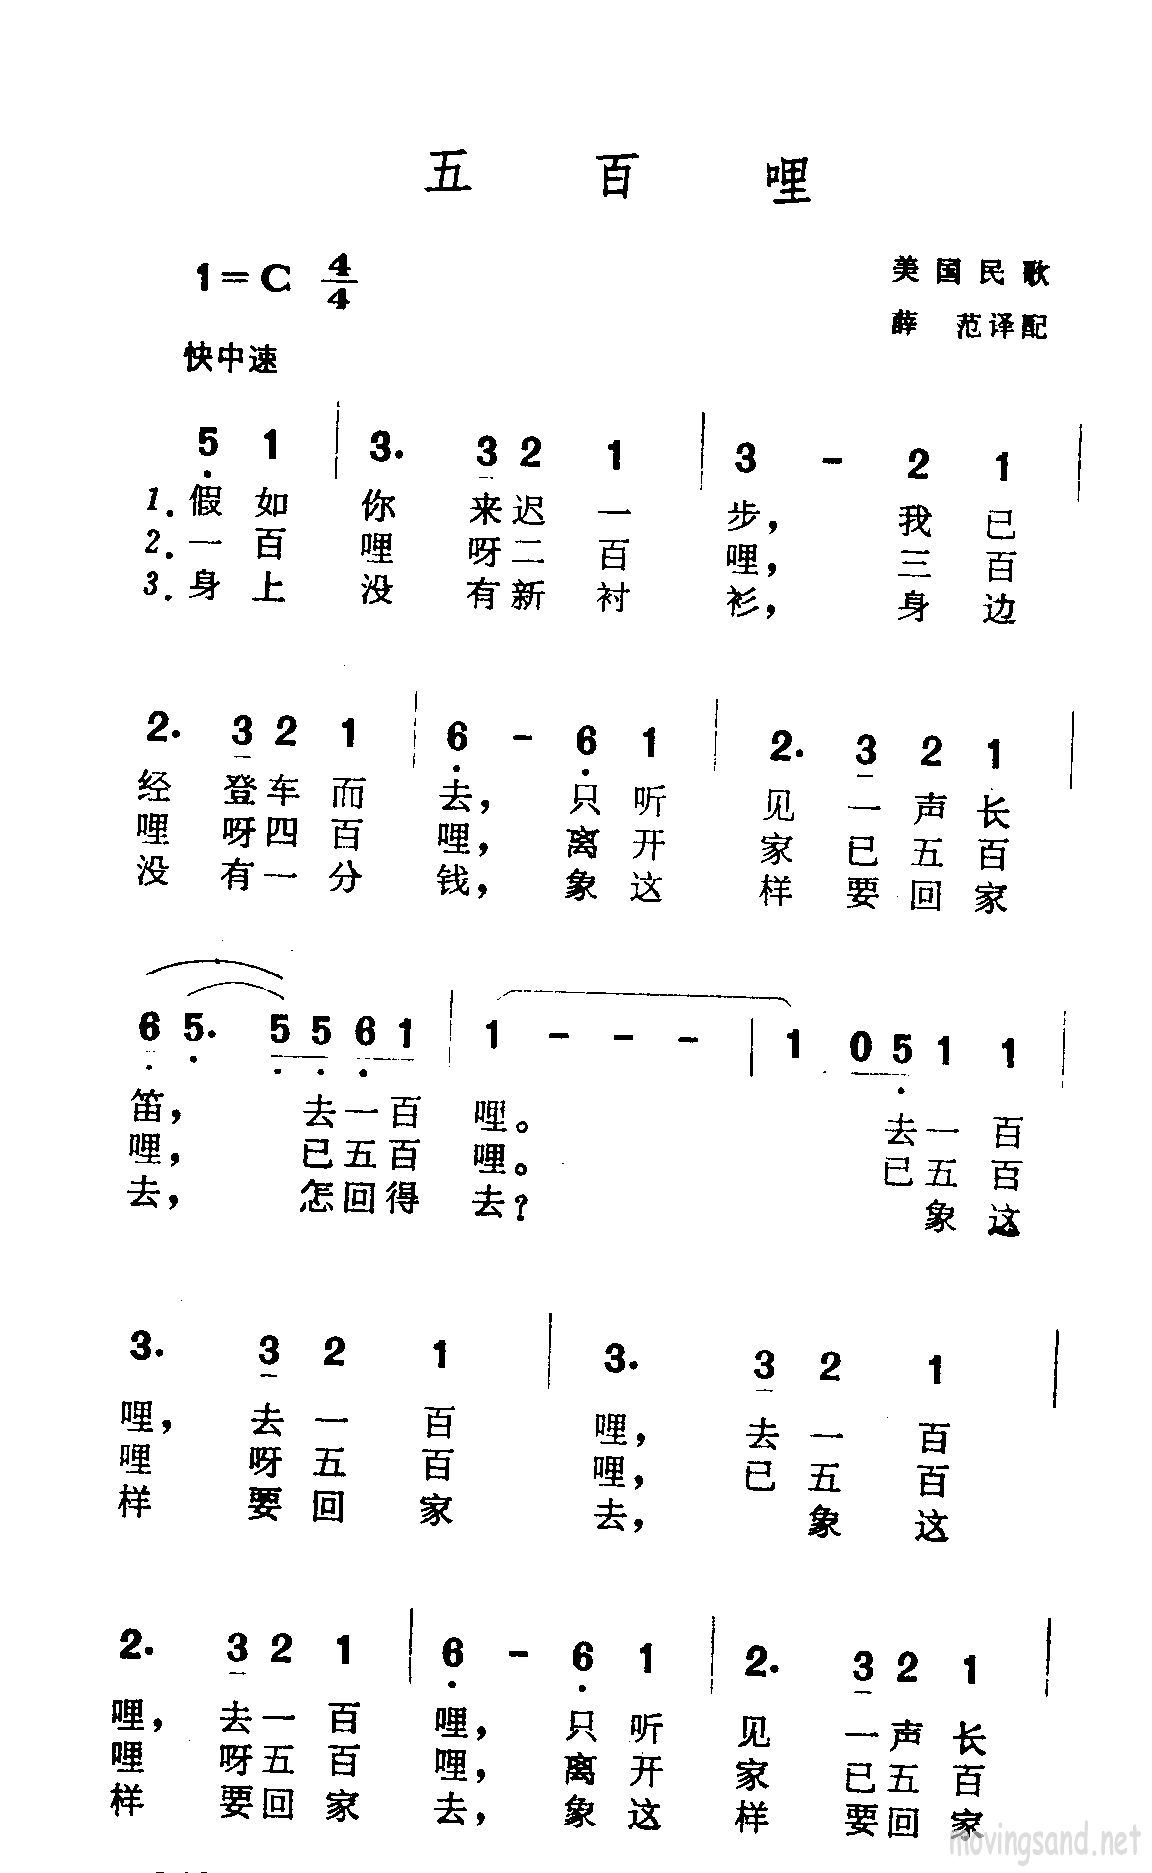 五 百 哩
1=C 4/4
美国民歌
薛 范译配
快中速
5 1 | 3. 3 2 1 | 3 - 2 1 |
1. 假如 你 来迟一 步, 我已
2. 一百 哩 呀二百 哩, 三百
3. 身上 没 有新衬 衫, 身边
2. 3 2 1 | 6 - 6 1 | 2. 3 2 1
经 登车而 去, 只听 见 一声长
哩 呀四百 哩, 离开 家 已五百
没 有一分 钱, 象这 样 要回家
6 5. 5 5 6 1 | 1 - - - | 1 0 5 1 1 |
笛, 去一百 哩。 去一百
哩, 已五百 哩。 已五百
去, 怎回得 去? 象这
3. 3 2 1 | 3. 3 2 1 |
哩, 去一百 哩, 去一百
哩 呀五百 哩, 已五百
样 要回家 去, 象这
2. 3 2 1 | 6 - 6 1 | 2. 3 2 1 |
哩, 去一百 哩, 只听 见 一声长
哩 呀五百 哩, 离开 家 已五百
样 要回家 去, 象这 样 要回家
movingsand.net